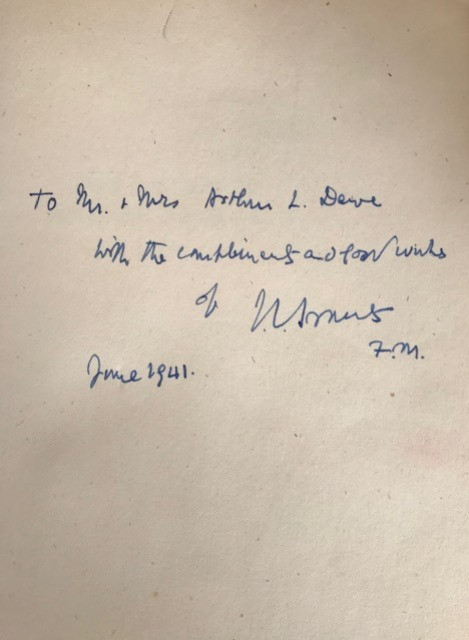 To Mr. & Mrs Arthur L. Dawe
with the compliments and good wishes
of J.C. Smuts
F.M.
June 1941.